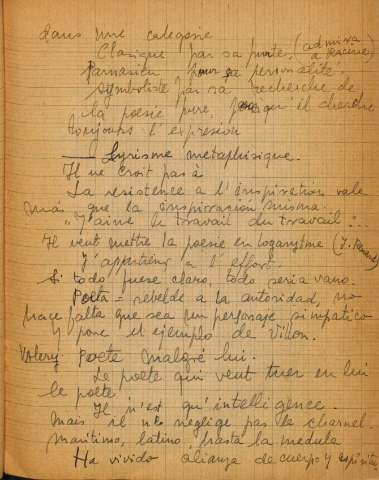 dans une categorie
Clasique par sa pureté. (admira
a Racine)
Parnasien pour sa personalité
Symboliste par sa recherche de
la poesie pure parqu'il cherche
toujours l'expresion
— Lyrisme metaphisique.
Il ne croit pas à
La resistence a l'inspiration vale
más que la inspiración misma.
"J'aime le travail du travail"...
Il veut mettre la poesie en logarytme (J.
J'appartiens a l'effort.
Si todo fuese claro, todo seria vano.
Poeta = rebelde a la autoridad, no
hace falta que sea un personaje simpatico
y pone el ejemplo de Villon.
Valery: Poete malgré lui.
Le poete qui veut tuer en lui
le poete
Il n'est qu'intelligence.
mais il ne neglige pas le charnel.
maritimo, latino, hasta la medula
Ha vivido alianza de cuerpo y espiritu